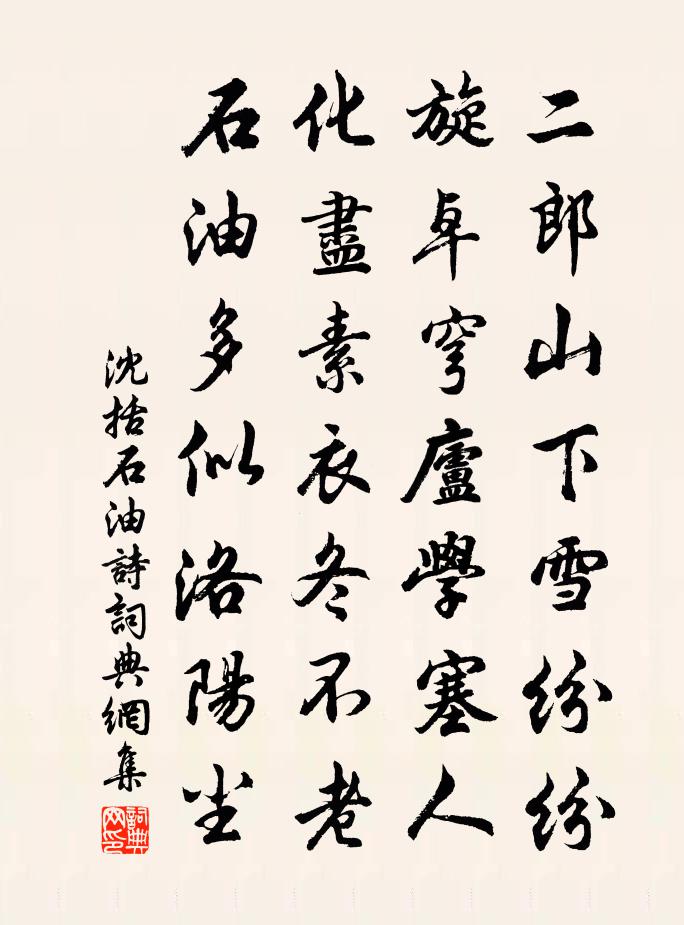 二郎山下雪紛紛
旋卓穹廬學塞人
化盡素衣冬不老
石油多似洛陽尘
沈括石油詩詞典網集
詞典
网印